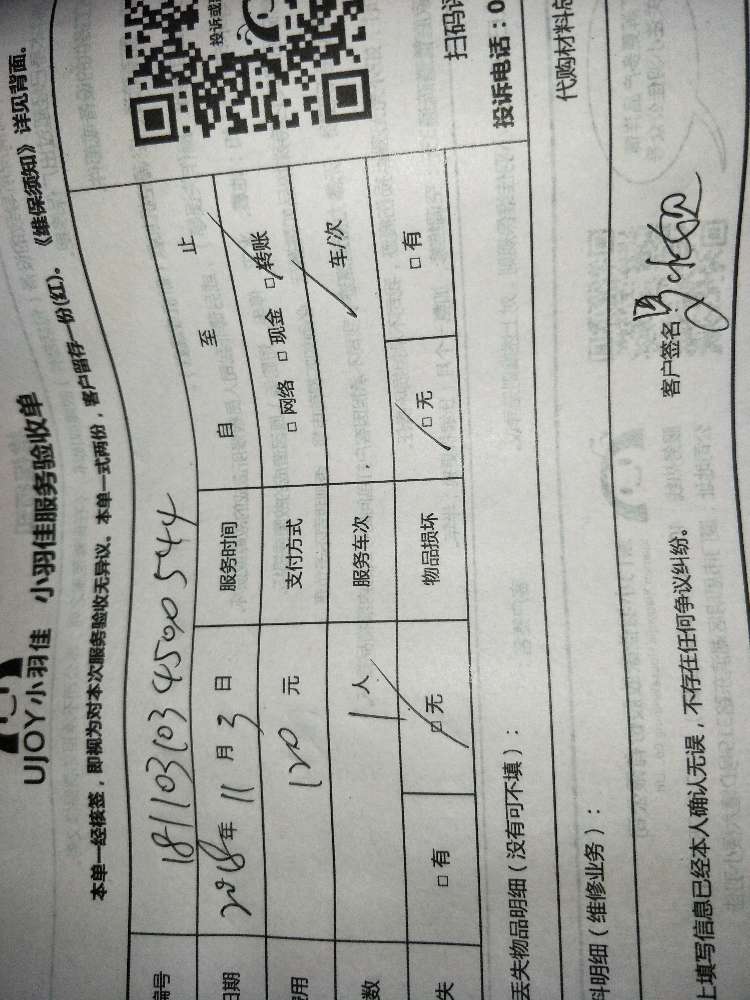 UJOY小羽佳 小羽佳服务验收单
本单一经核签，即视为对本次服务验收无异议。本单一式两份，客户留存一份(红)。《维保须知》详见背面。
编号 1811031034500544
日期 2018年11月3日 服务时间 自 至 止
费用 120元 支付方式 □网络 □现金 □转账
数 1人 服务车次 车/次
失 □有 □无 物品损坏 □无 □有
丢失物品明细（没有可不填）：
料明细（维修业务）：
上填写信息已经本人确认无误，不存在任何争议纠纷。 客户签名：
投诉或
扫码
投诉电话：0
代购材料总